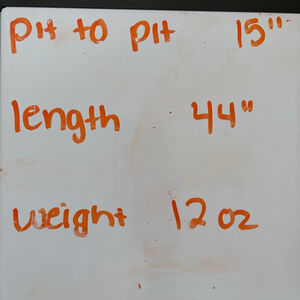 pit to pit 15"
length 44"
weight 12 oz